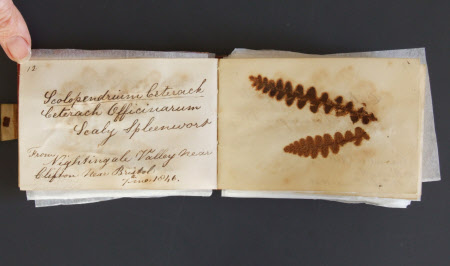 12.
Scolopendrium Ceterach
Ceterach Officinarum
Scaly Spleenwort
From Nightingale Valley near
Clifton near Bristol
June 1846.